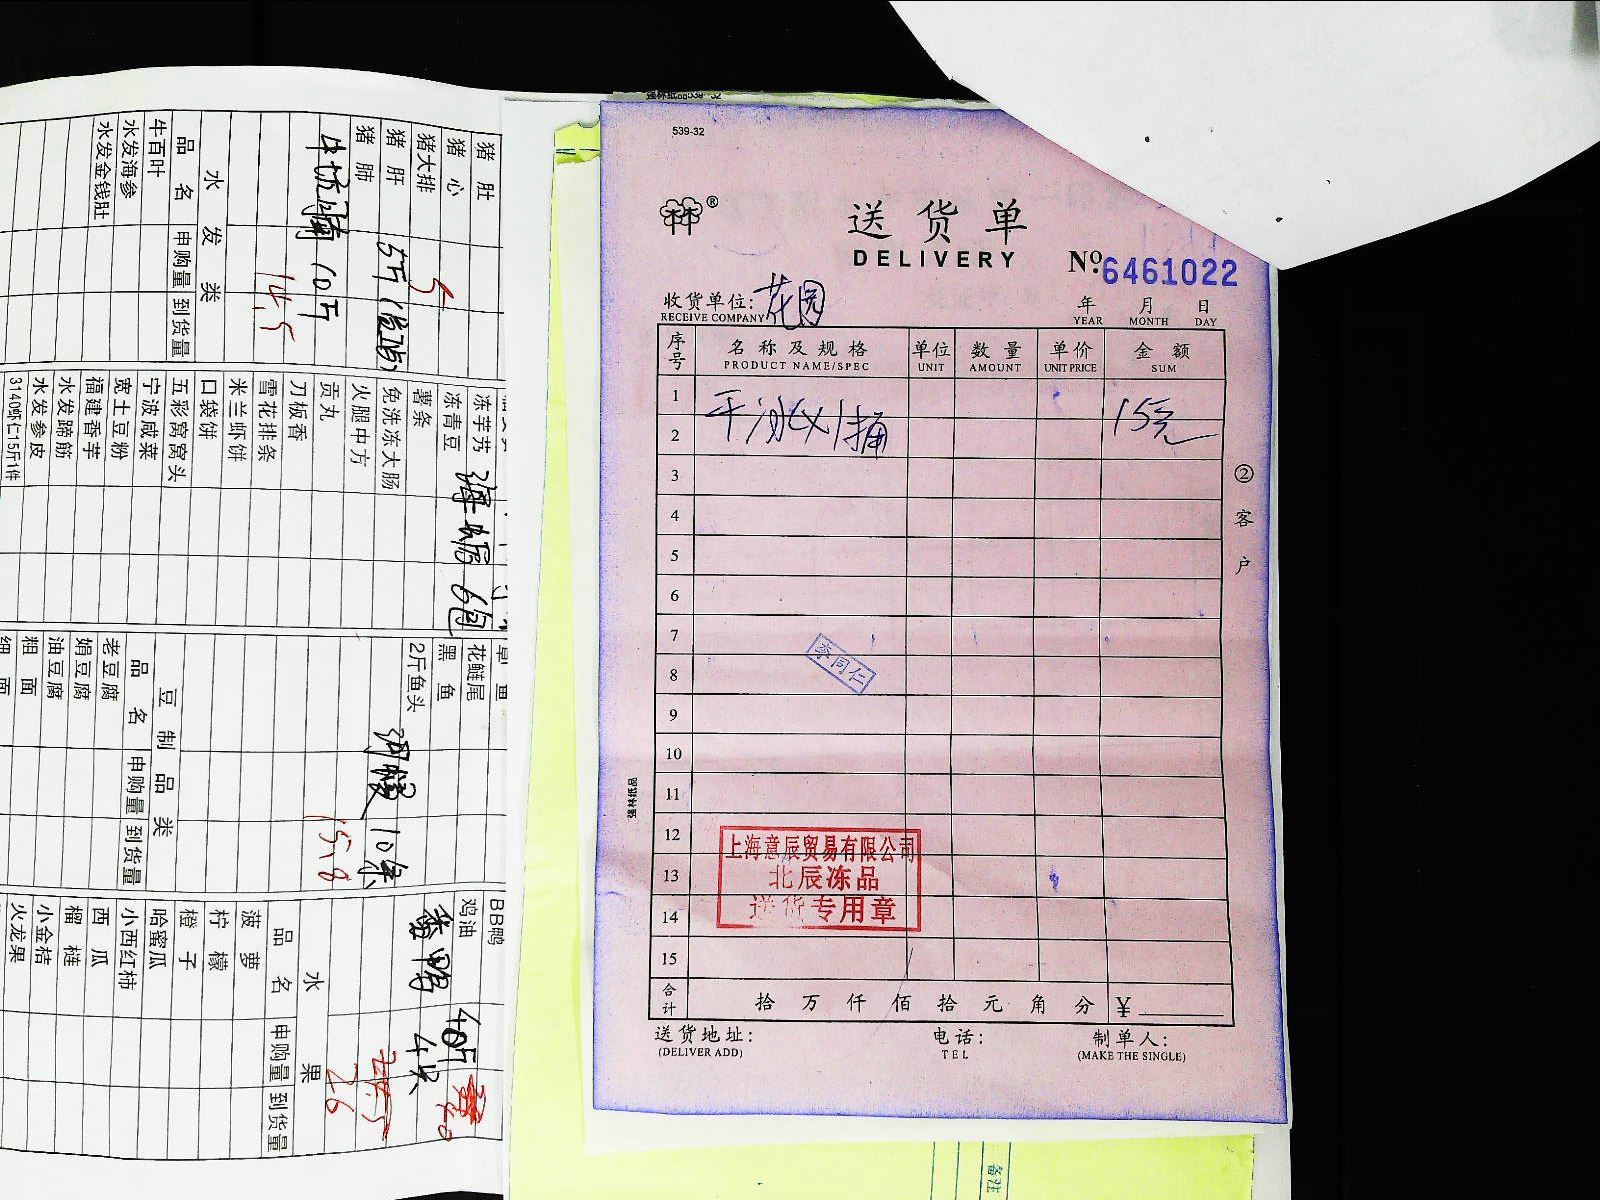 539-32
林®
送货单
DELIVERY
No.6461022
收货单位:花园
RECEIVE COMPANY
年 月 日
YEAR MONTH DAY
序号 名称及规格 单位 数量 单价 金额
PRODUCT NAME/SPEC UNIT AMOUNT UNIT PRICE SUM
1
2
15元
3
4
5
6
7
8
9
10
11
12
13
14
15
李同仁
上海意辰贸易有限公司
北辰冻品
送货专用章
合计 拾 万 仟 佰 拾 元 角 分 ¥
送货地址: 电话: 制单人:
(DELIVER ADD) TEL (MAKE THE SINGLE)
②客户
强林纸品
备注
猪肚
猪心
猪大排 5
猪肝
猪肺
10斤
14.5
水发类
品名 申购量 到货量
牛百叶
水发海参
水发金钱肚
冻芋艿
冻青豆
薯条
免洗冻大肠
火腿中方
贡丸
刀板香
雪花排条
米兰虾饼
口袋饼
五彩窝窝头
宁波咸菜
宽土豆粉
福建香芋
水发蹄筋
水发参皮
3140虾仁15斤1件
花鲢尾
黑鱼
2斤鱼头
10条
15.8
豆制品类
品名 申购量 到货量
老豆腐
娟豆腐
油豆腐
粗面
细面
BB鸭
鸡油
番鸭 4只
26
水果
品名 申购量 到货量
菠萝
柠檬
橙子
哈蜜瓜
小西红柿
西瓜
榴梿
小金桔
火龙果